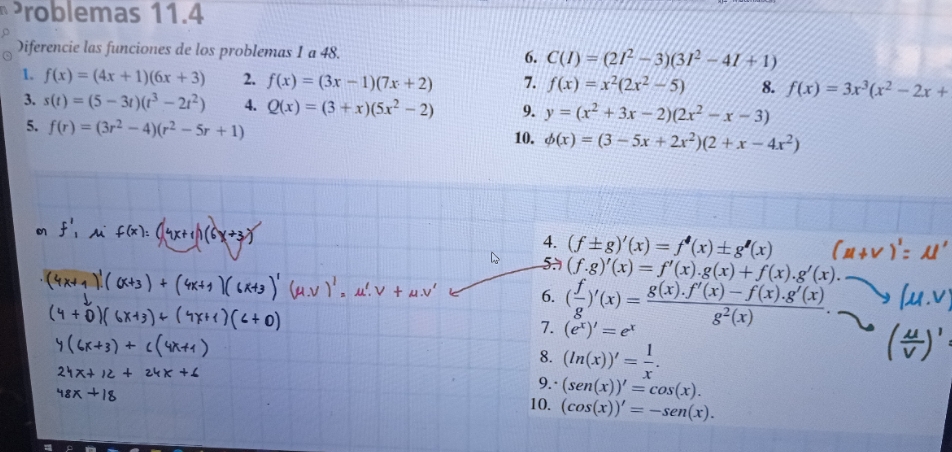 Problemas 11.4
Diferencie las funciones de los problemas 1 a 48.
1. f(x) = (4x + 1)(6x + 3) 2. f(x) = (3x − 1)(7x + 2)
3. s(t) = (5 − 3t)(t³ − 2t²) 4. Q(x) = (3 + x)(5x² − 2)
5. f(r) = (3r² − 4)(r² − 5r + 1)
6. C(I) = (2I² − 3)(3I² − 4I + 1)
7. f(x) = x²(2x² − 5) 8. f(x) = 3x³(x² − 2x +
9. y = (x² + 3x − 2)(2x² − x − 3)
10. ϕ(x) = (3 − 5x + 2x²)(2 + x − 4x²)
f', si f(x): (4x+1)(6x+3)
(4x+1)'.(6x+3) + (4x+1)(6x+3)' (u.v)' = u'.v + u.v'
(4+0)(6x+3) + (4x+1)(6+0)
4(6x+3) + 6(4x+1)
24x+12 + 24x+6
48x+18
4. (f ± g)'(x) = f'(x) ± g'(x) (u+v)' = u'
5. (f.g)'(x) = f'(x).g(x) + f(x).g'(x). (u.v)
6. (f/g)'(x) = g(x).f'(x) − f(x).g'(x) / g²(x). (u/v)' =
7. (eˣ)' = eˣ
8. (ln(x))' = 1/x.
9. (sen(x))' = cos(x).
10. (cos(x))' = −sen(x).